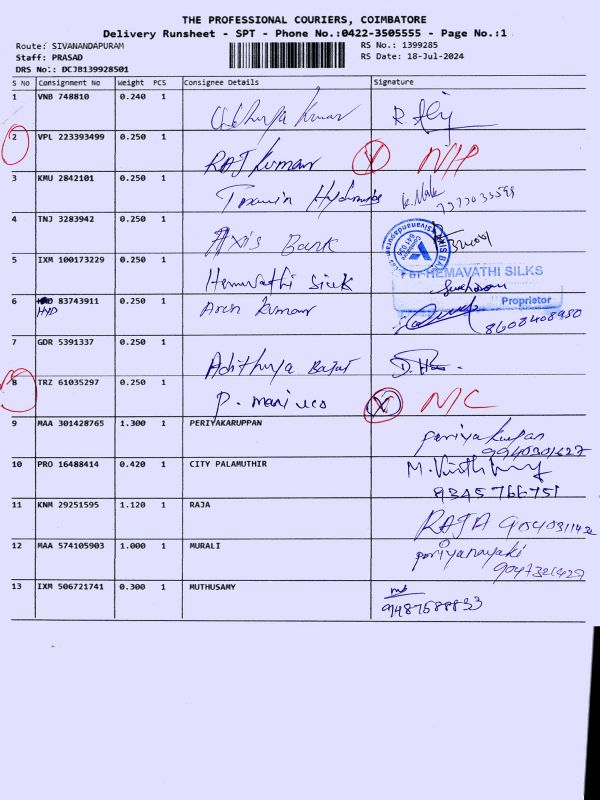 THE PROFESSIONAL COURIERS, COIMBATORE
Delivery Runsheet - SPT - Phone No.:0422-3505555 - Page No.:1
Route: SIVANANDAPURAM
RS No.: 1399285
Staff: PRASAD
RS Date: 18-Jul-2024
DRS No.: DCJB139928501
S No Consignment No Weight PCS Consignee Details Signature
1 VNB 748810 0.240 1
2 VPL 223393499 0.250 1
Raj Kumar
3 KMU 2842101 0.250 1
4 TNJ 3283942 0.250 1
Axis Bank
5 IXM 100173229 0.250 1
Hemavathi Silk
HEMAVATHI SILKS
Proprietor
6 83743911 0.250 1 Arun Kumar
HYD
8608408950
7 GDR 5391337 0.250 1
Adithya Bajaj
8 TRZ 61035297 0.250 1
N/C
9 MAA 301428765 1.300 1 PERIYAKARUPPAN
10 PRO 16488414 0.420 1 CITY PALAMUTHIR
9345766751
11 KNM 29251595 1.120 1 RAJA
RAJA
12 MAA 574105903 1.000 1 MURALI
periyanayaki
13 IXM 506721741 0.300 1 MUTHUSAMY